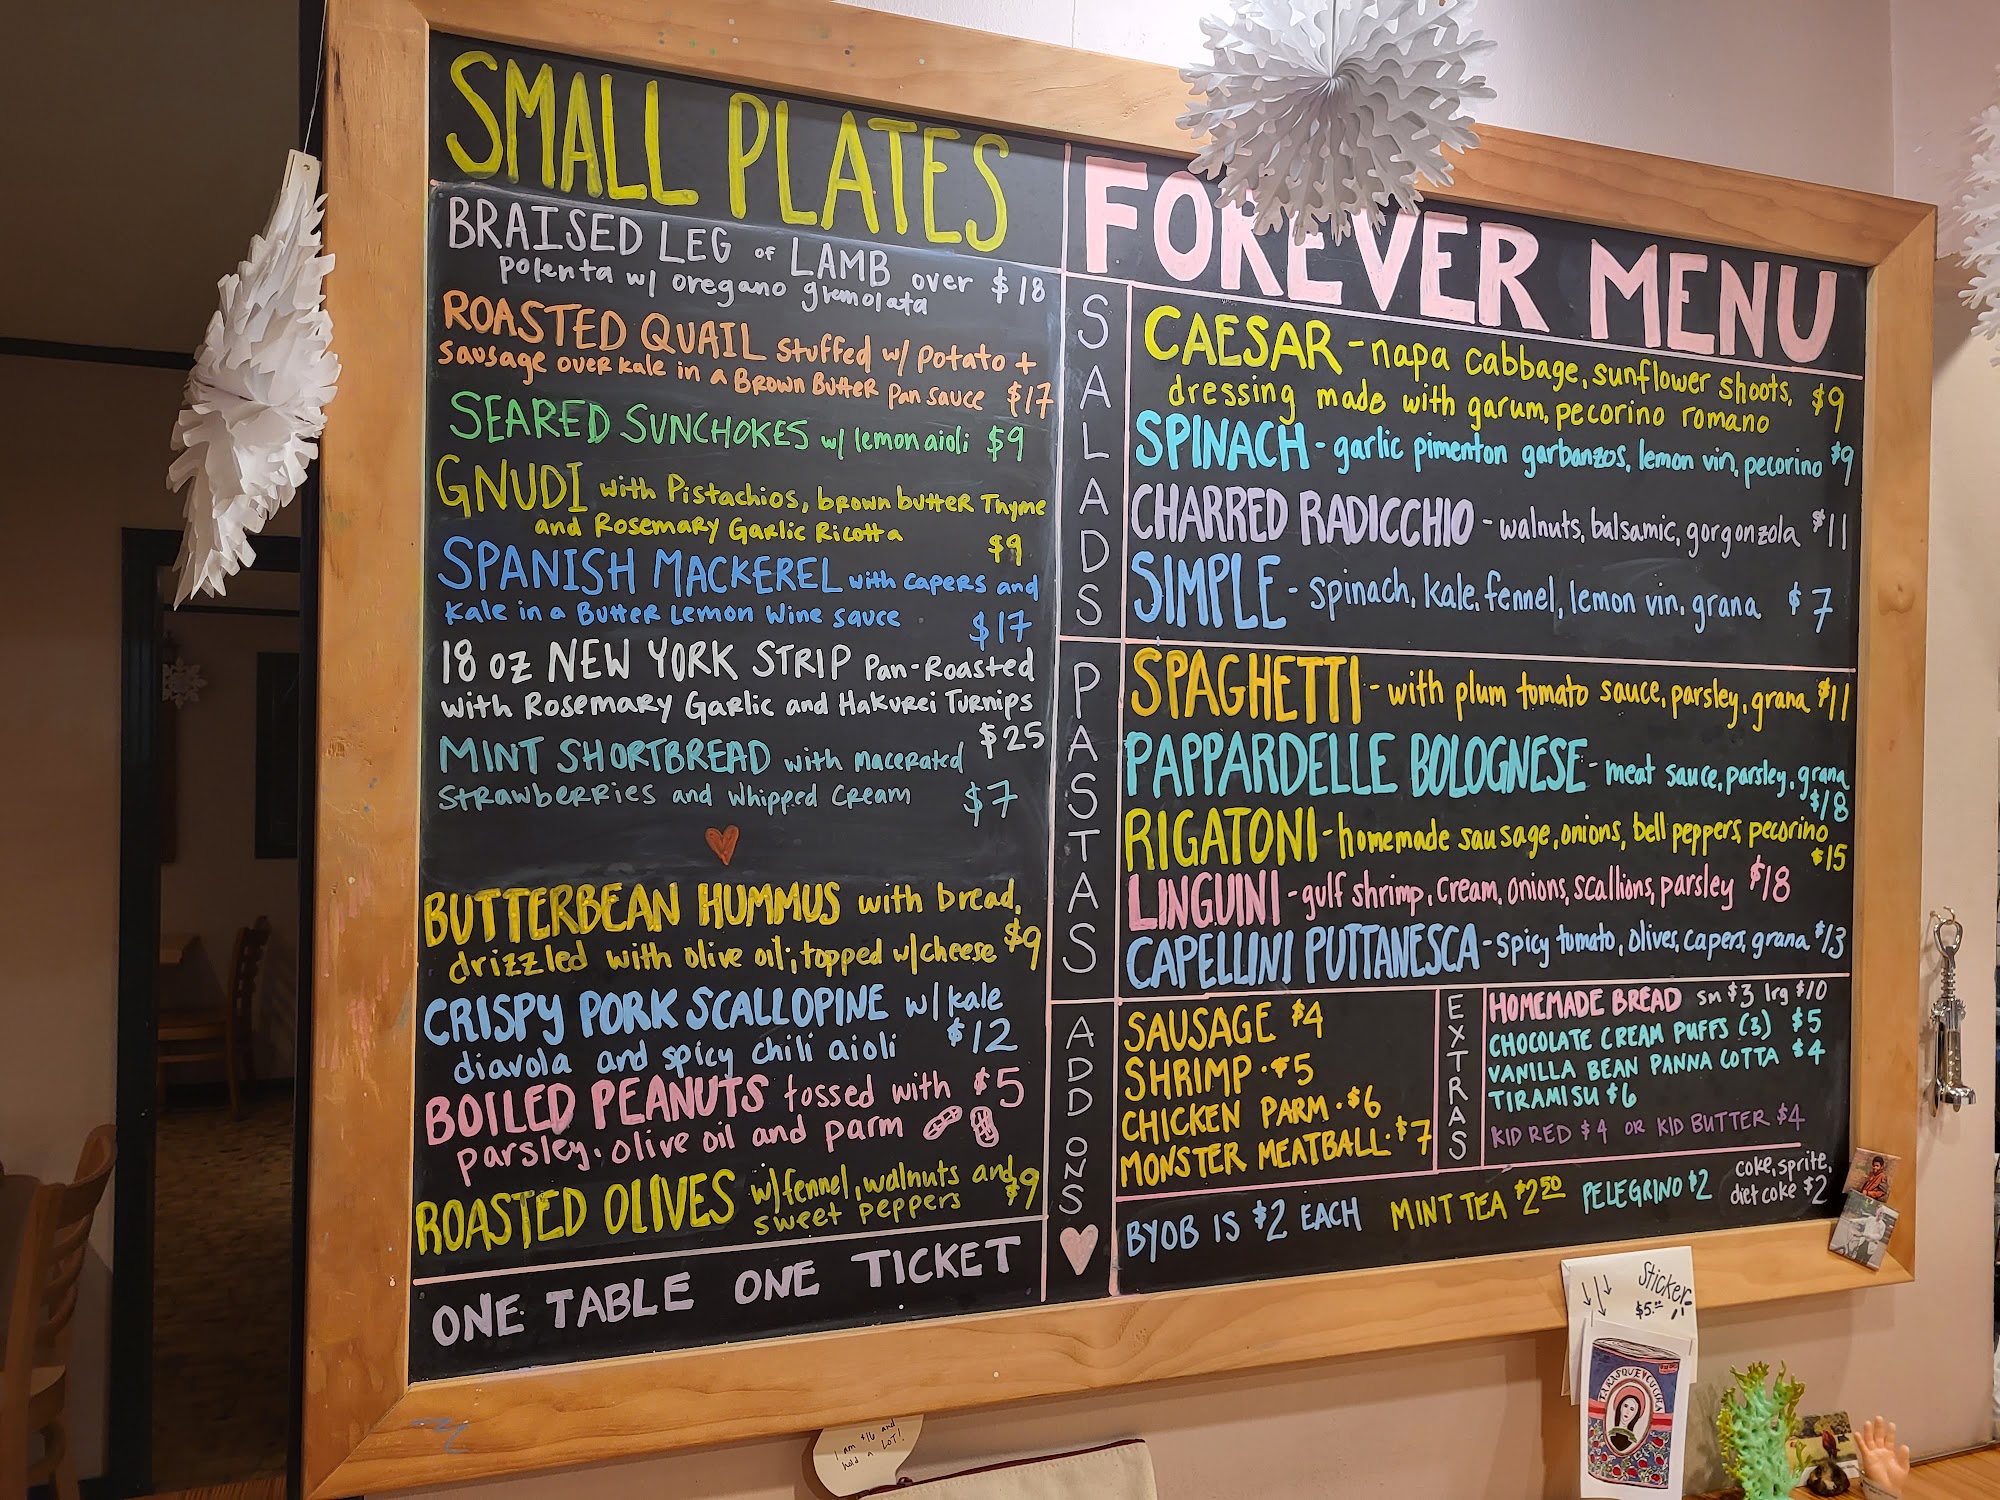 SMALL PLATES
BRAISED LEG of LAMB over
polenta w/ oregano gremolata $18
ROASTED QUAIL stuffed w/ potato +
sausage over kale in a Brown Butter Pan sauce $17
SEARED SUNCHOKES w/ lemon aioli $9
GNUDI with Pistachios, brown butter Thyme
and Rosemary Garlic Ricotta $9
SPANISH MACKEREL with capers and
Kale in a Butter Lemon Wine sauce $17
18 oz NEW YORK STRIP Pan-Roasted
with Rosemary Garlic and Hakurei Turnips
$25
MINT SHORTBREAD with macerated
strawberries and whipped cream $7
BUTTERBEAN HUMMUS with bread,
drizzled with olive oil; topped w/ cheese $9
CRISPY PORK SCALLOPINE w/ kale
diavola and spicy chili aioli $12
BOILED PEANUTS tossed with $5
parsley, olive oil and parm
ROASTED OLIVES w/ fennel, walnuts and
sweet peppers $9
ONE TABLE ONE TICKET
FOREVER MENU
SALADS
CAESAR - napa cabbage, sunflower shoots,
dressing made with garum, pecorino romano $9
SPINACH - garlic pimenton garbanzos, lemon vin, pecorino $9
CHARRED RADICCHIO - walnuts, balsamic, gorgonzola $11
SIMPLE - spinach, kale, fennel, lemon vin, grana $7
PASTAS
SPAGHETTI - with plum tomato sauce, parsley, grana $11
PAPPARDELLE BOLOGNESE - meat sauce, parsley, grana
$18
RIGATONI - homemade sausage, onions, bell peppers, pecorino
$15
LINGUINI - gulf shrimp, cream, onions, scallions, parsley $18
CAPELLINI PUTTANESCA - spicy tomato, olives, capers, grana $13
ADD ONS
SAUSAGE $4
SHRIMP · $5
CHICKEN PARM · $6
MONSTER MEATBALL · $7
EXTRAS
HOMEMADE BREAD sm $3 lrg $10
CHOCOLATE CREAM PUFFS (3) $5
VANILLA BEAN PANNA COTTA $4
TIRAMISU $6
KID RED $4 OR KID BUTTER $4
BYOB IS $2 EACH
MINT TEA $2.50
PELEGRINO $2
coke, sprite,
diet coke $2
Sticker
$5.00
I am $16 and
hold a LOT!